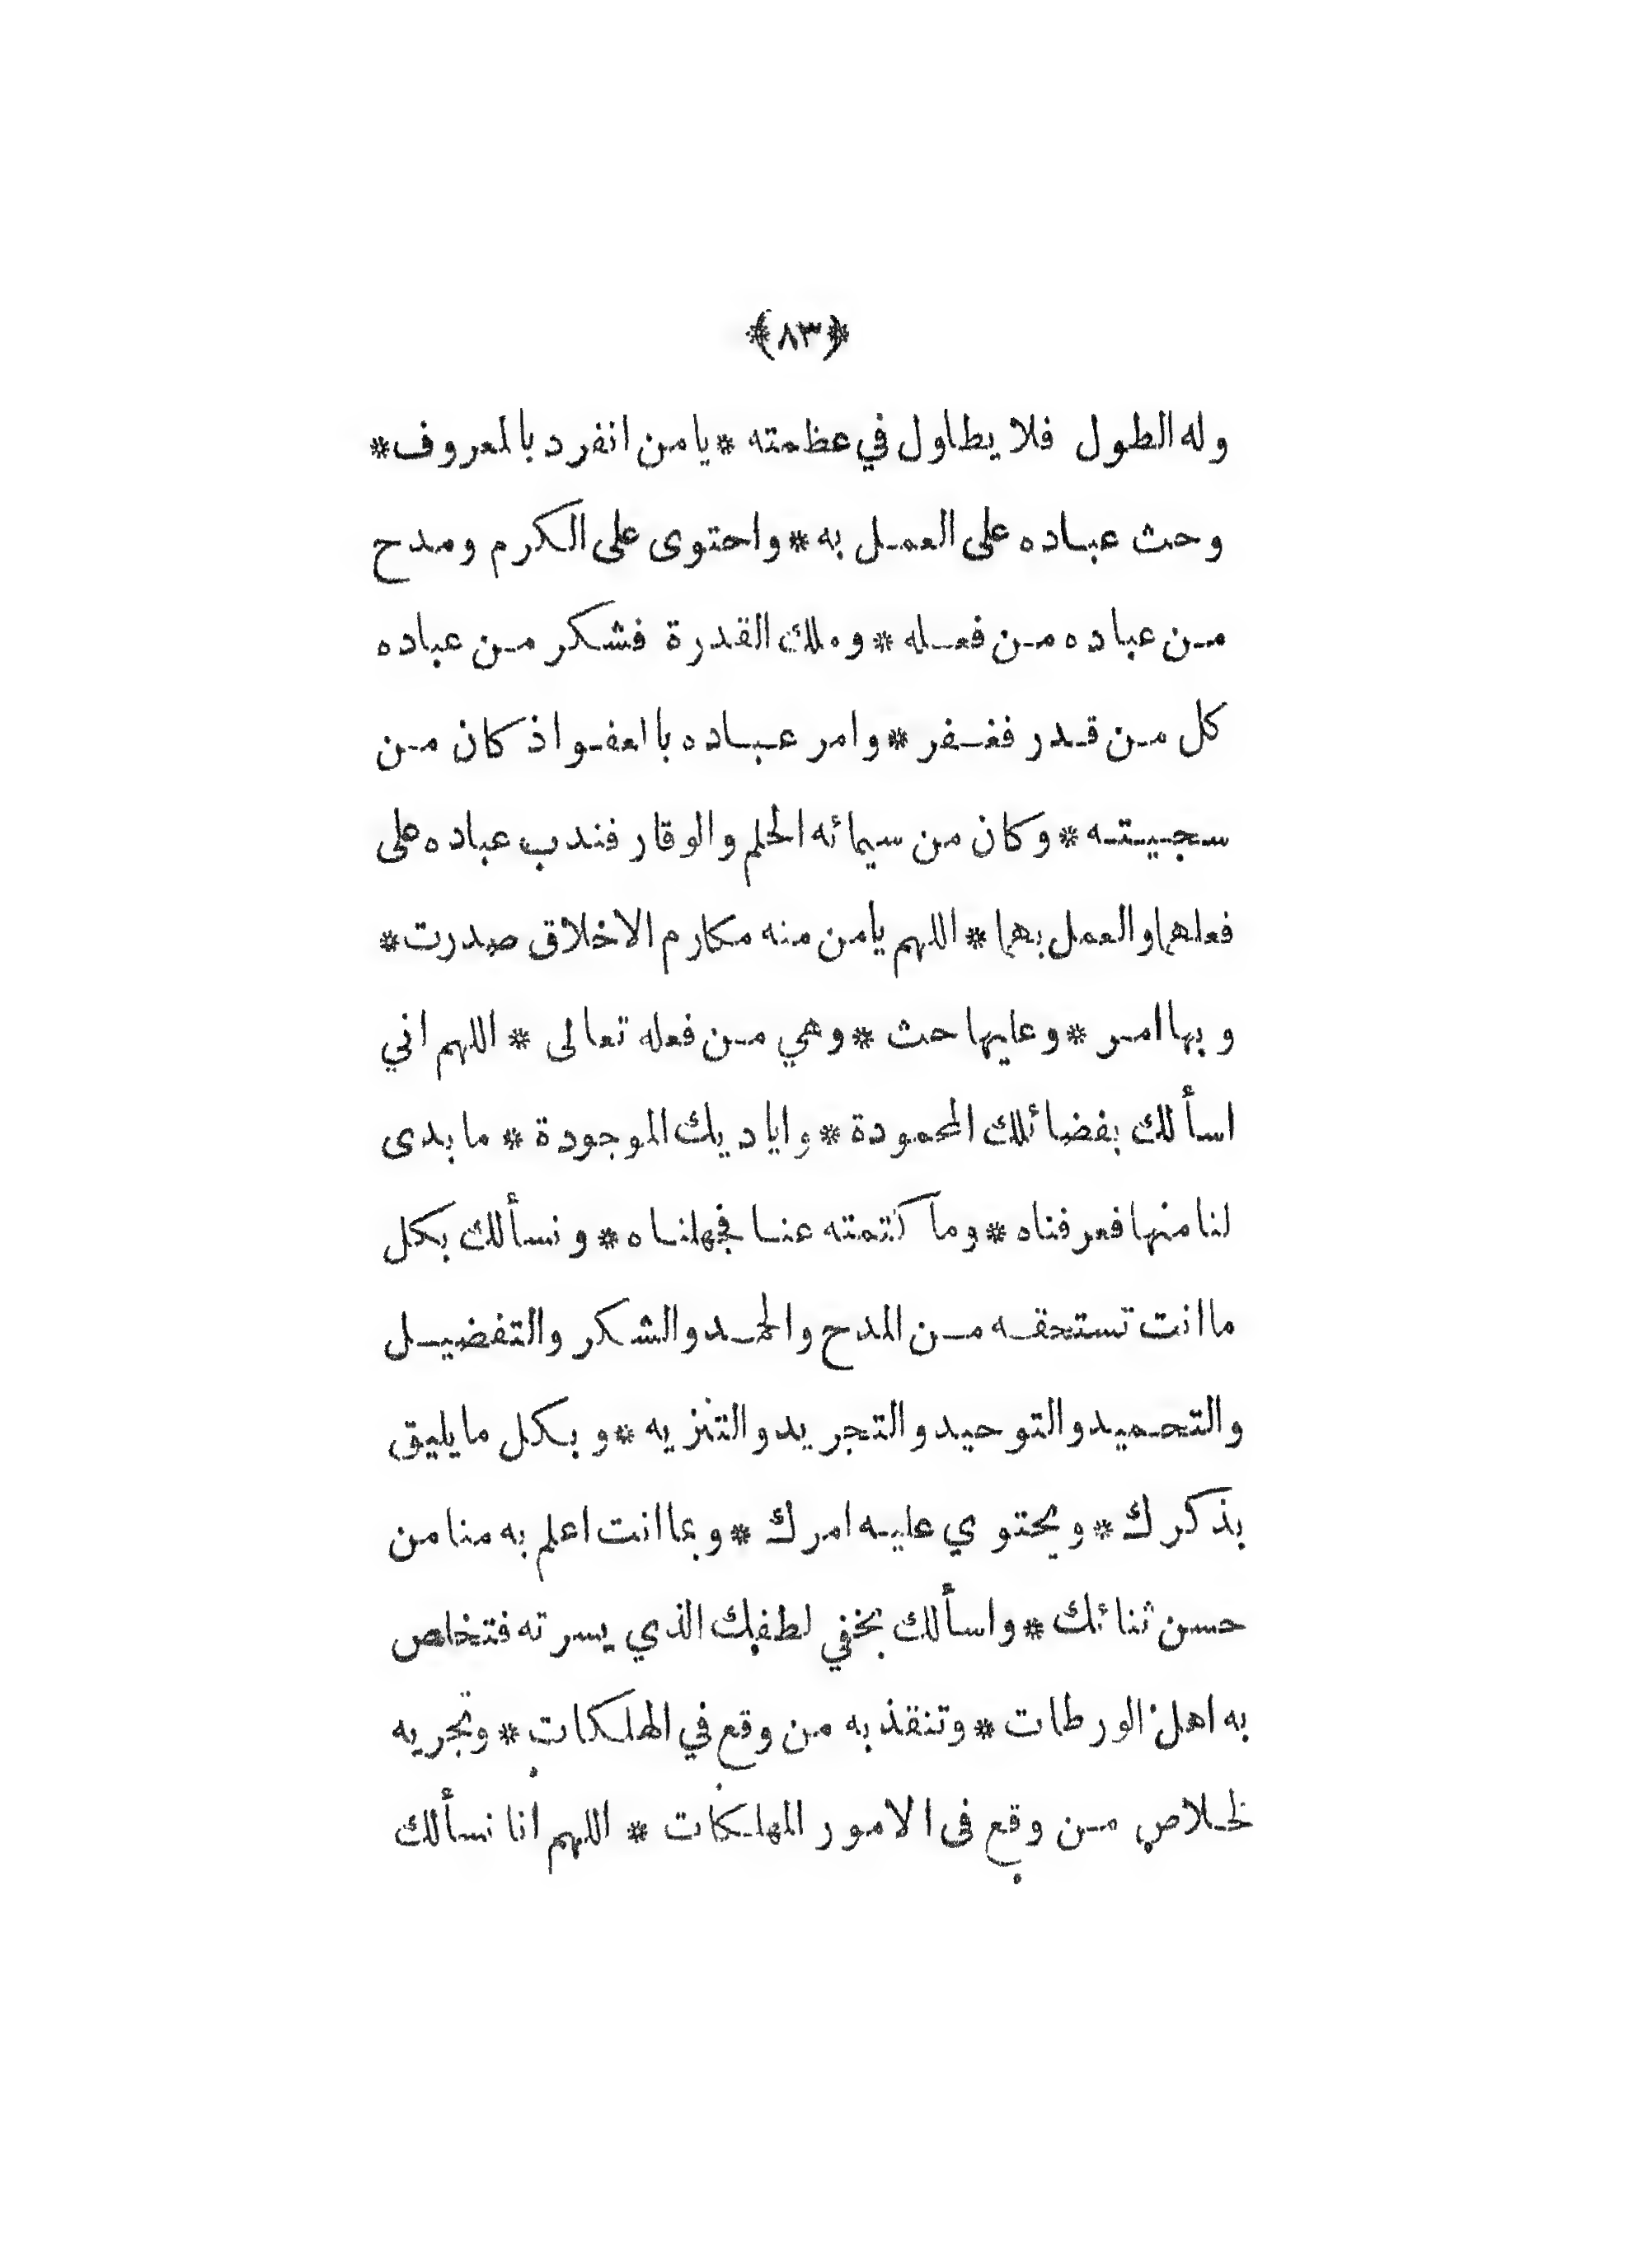 ﴿٨٣﴾
وله الطول فلا يطاول في عظمته * يامن انفرد بالمعروف *
وحث عباده على العمل به * واحتوى على الكرم ومدح
من عباده من فعله * وملك القدرة فشكر من عباده
كل من قدر فغفر * وامر عباده بالعفو اذ كان من
سجيته * وكان من سيمائه الحلم والوقار فندب عباده على
فعلهما والعمل بهما * اللهم يامن منه مكارم الاخلاق صدرت *
وبها امر * وعليها حث * وهي من فعله تعالى * اللهم اني
اسألك بفضائلك المحمودة * واياديك الموجودة * ما بدى
لنا منها فعرفناه * وما كتمته عنا فجهلناه * ونسألك بكل
ما انت تستحقه من المدح والحمد والشكر والتفضيل
والتحميد والتوحيد والتجريد والتنزيه * وبكل ما يليق
بذكرك * ويحتوي عليه امرك * وبما انت اعلم به منا من
حسن ثنائك * واسألك بخفي لطفك الذي يسرته فتخلص
به اهل الورطات * وتنقذ به من وقع في الهلكات * وتجريه
لخلاص من وقع فى الامور المهلكات * اللهم انا نسألك